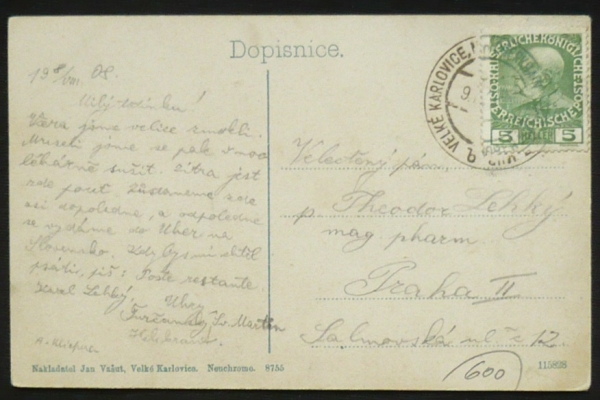 Dopisnice.
19 8/VIII 08.
Milý tatínku!
Včera jsme velice zmokli.
Museli jsme se pak v noci
lékárně sušit. Zítra jest
zde pouť. Zůstaneme zde
asi dopoledne, a odpoledne
se vydáme do Uher na
Slovensko. Kdybys mi chtěl
psáti, piš: Poste restante.
Karel Lehký. Uhry
Turčanský Sv. Martin
Velectěný pán,
p. Theodor Lehký
mag. pharm.
Praha II
Salmovská ul č 12.
VELKÉ KARLOVICE
9
KAISERLICHE KÖNIGLICHE
ÖSTERREICHISCHE
5 HELLER 5
Nakladatel Jan Vašut, Velké Karlovice. Neuchromo. 8755
600
115898